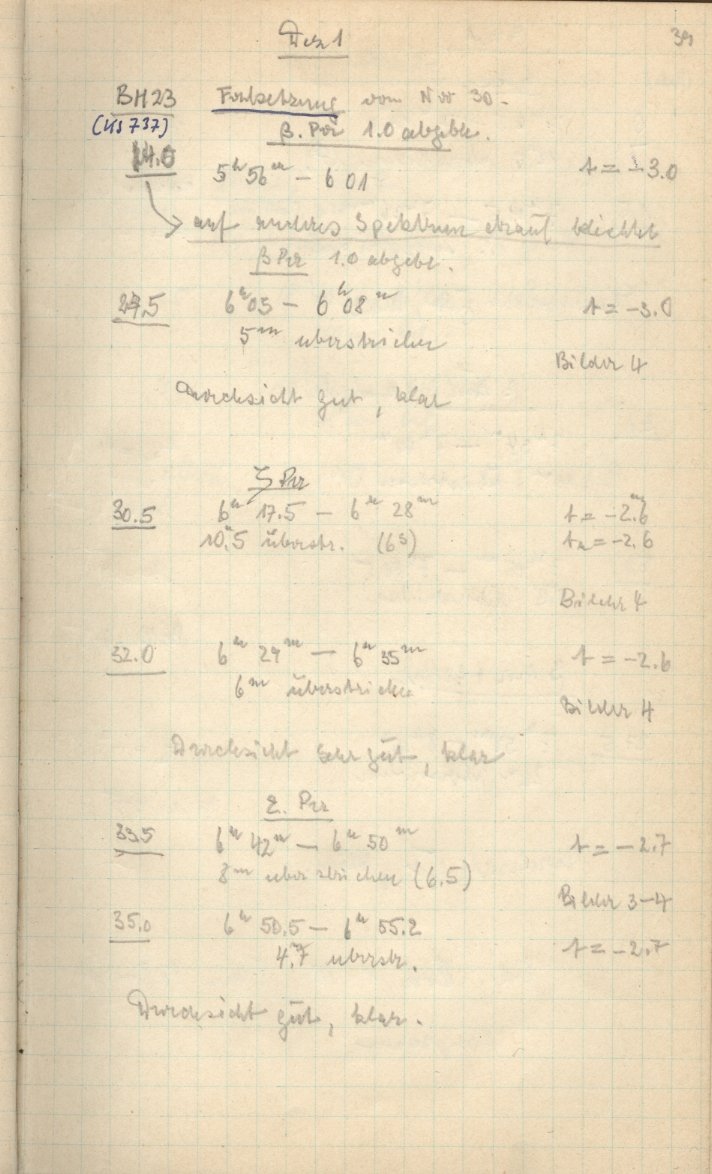 Dez 1
39
BH 23 Fortsetzung vom Nov 30.
(US 737) β. Per 1.0 abgebl.
14.0 5ʰ 56ᵐ – 6 01 t = –3.0
auf anderes Spektrum drauf belichtet
β Per 1.0 abgebl.
6ʰ 03 – 6ʰ 08ᵐ t = –3.0
5ᵐ überstrichen
Bilder 4
Durchsicht gut, klar
ζ Per
30.5 6ʰ 17.5 – 6ʰ 28ᵐ t = –2.6
10.5 überstr. (6.5) tₙ = –2.6
Bilder 4
32.0 6ʰ 29ᵐ – 6ʰ 35ᵐ t = –2.6
6ᵐ überstrichen
Bilder 4
Durchsicht sehr gut, klar
ε. Per
33.5 6ʰ 42ᵐ – 6ʰ 50ᵐ t = –2.7
8ᵐ überstrichen (6.5)
Bilder 3–4
35.0 6ʰ 50.5 – 6ʰ 55.2
4.7 überstr. t = –2.7
Durchsicht gut, klar.